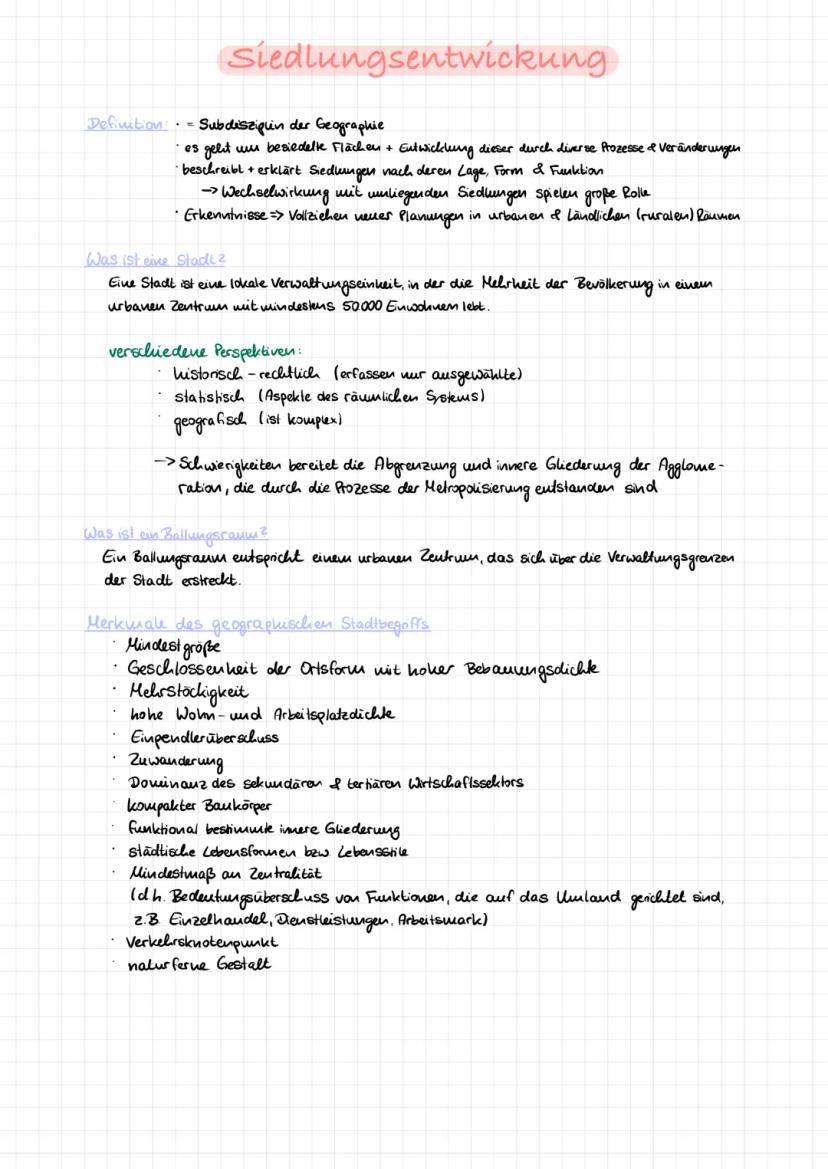 Siedlungsentwickung
Definition: · = Subdisziplin der Geographie
· es geht um besiedelte Flächen + Entwicklung dieser durch diverse Prozesse & Veränderungen
· beschreibt + erklärt Siedlungen nach deren Lage, Form & Funktion
→ Wechselwirkung mit umliegenden Siedlungen spielen große Rolle
· Erkenntnisse => Vollziehen neuer Planungen in urbanen & Ländlichen (ruralen) Räumen
Was ist eine Stadt?
Eine Stadt ist eine lokale Verwaltungseinheit, in der die Mehrheit der Bevölkerung in einem
urbanen Zentrum mit mindestens 50.000 Einwohnern lebt.
verschiedene Perspektiven:
· historisch - rechtlich (erfassen nur ausgewählte)
· statistisch (Aspekte des räumlichen Systems)
· geografisch (ist komplex)
→ Schwierigkeiten bereitet die Abgrenzung und innere Gliederung der Agglome-
ration, die durch die Prozesse der Metropolisierung entstanden sind
Was ist ein Ballungsraum?
Ein Ballungsraum entspricht einem urbanen Zentrum, das sich über die Verwaltungsgrenzen
der Stadt erstreckt.
Merkmale des geographischen Stadtbegriffs
· Mindestgröße
· Geschlossenheit der Ortsform mit hoher Bebauungsdichte
· Mehrstöckigkeit
· hohe Wohn- und Arbeitsplatzdichte
· Einpendlerüberschuss
· Zuwanderung
· Dominanz des sekundären & tertiären Wirtschaftssektors
· kompakter Baukörper
· funktional bestimmte innere Gliederung
· städtische Lebensformen bzw. Lebensstile
· Mindestmaß an Zentralität
(d.h. Bedeutungsüberschuss von Funktionen, die auf das Umland gerichtet sind,
z.B. Einzelhandel, Dienstleistungen, Arbeitsmark)
· Verkehrsknotenpunkt
· naturferne Gestalt